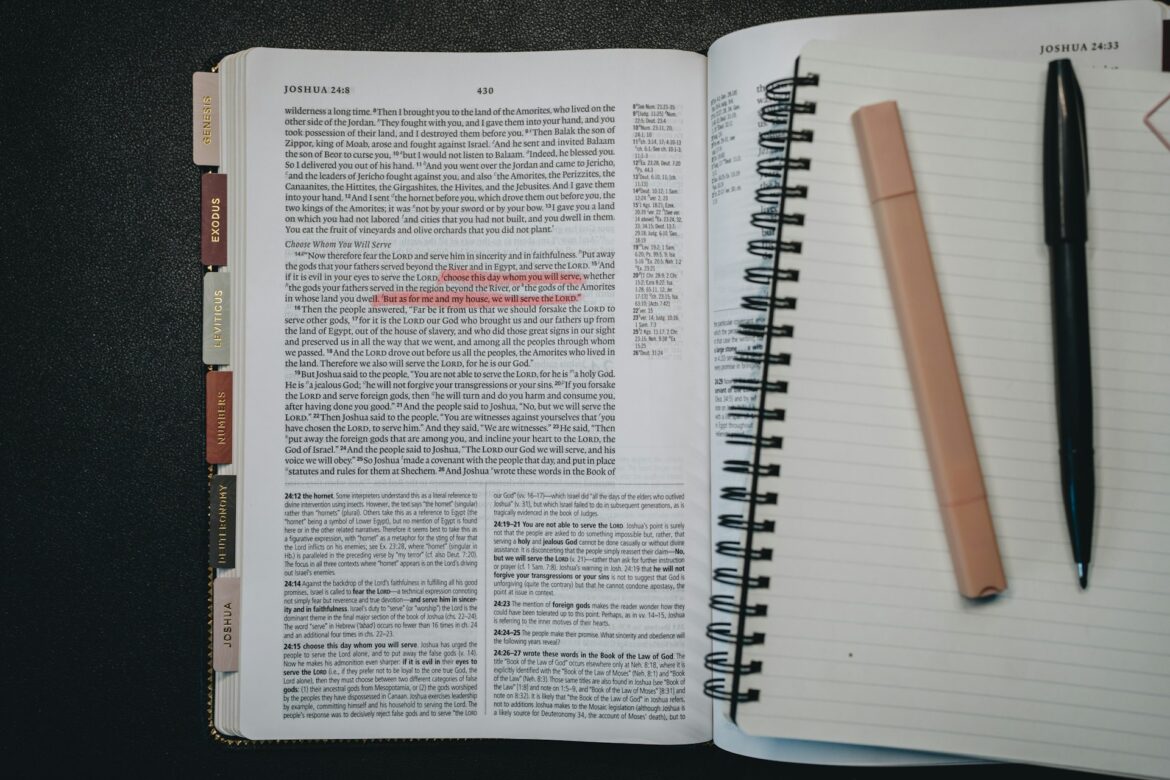 GENESIS
EXODUS
LEVITICUS
NUMBERS
DEUTERONOMY
JOSHUA
JOSHUA 24:8
430
wilderness a long time. 8 Then I brought you to the land of the Amorites, who lived on the
other side of the Jordan. They fought with you, and I gave them into your hand, and you
took possession of their land, and I destroyed them before you. 9 Then Balak the son of
Zippor, king of Moab, arose and fought against Israel. And he sent and invited Balaam
the son of Beor to curse you, 10 but I would not listen to Balaam. Indeed, he blessed you.
So I delivered you out of his hand. 11 And you went over the Jordan and came to Jericho,
and the leaders of Jericho fought against you, and also the Amorites, the Perizzites, the
Canaanites, the Hittites, the Girgashites, the Hivites, and the Jebusites. And I gave them
into your hand. 12 And I sent the hornet before you, which drove them out before you, the
two kings of the Amorites; it was not by your sword or by your bow. 13 I gave you a land
on which you had not labored and cities that you had not built, and you dwell in them.
You eat the fruit of vineyards and olive orchards that you did not plant.'
Choose Whom You Will Serve
14 "Now therefore fear the LORD and serve him in sincerity and in faithfulness. Put away
the gods that your fathers served beyond the River and in Egypt, and serve the LORD. 15 And
if it is evil in your eyes to serve the LORD, choose this day whom you will serve, whether
the gods your fathers served in the region beyond the River, or the gods of the Amorites
in whose land you dwell. But as for me and my house, we will serve the LORD."
16 Then the people answered, "Far be it from us that we should forsake the LORD to
serve other gods, 17 for it is the LORD our God who brought us and our fathers up from
the land of Egypt, out of the house of slavery, and who did those great signs in our sight
and preserved us in all the way that we went, and among all the peoples through whom
we passed. 18 And the LORD drove out before us all the peoples, the Amorites who lived in
the land. Therefore we also will serve the LORD, for he is our God."
19 But Joshua said to the people, "You are not able to serve the LORD, for he is a holy God.
He is a jealous God; he will not forgive your transgressions or your sins. 20 If you forsake
the LORD and serve foreign gods, then he will turn and do you harm and consume you,
after having done you good." 21 And the people said to Joshua, "No, but we will serve the
LORD." 22 Then Joshua said to the people, "You are witnesses against yourselves that you
have chosen the LORD, to serve him." And they said, "We are witnesses." 23 He said, "Then
put away the foreign gods that are among you, and incline your heart to the LORD, the
God of Israel." 24 And the people said to Joshua, "The LORD our God we will serve, and his
voice we will obey." 25 So Joshua made a covenant with the people that day, and put in place
statutes and rules for them at Shechem. 26 And Joshua wrote these words in the Book of
24:12 the hornet. Some interpreters understand this as a literal reference to
divine intervention using insects. However, the text says "the hornet" (singular)
rather than "hornets" (plural). Others take this as a reference to Egypt (the
"hornet" being a symbol of Lower Egypt), but no mention of Egypt is found
here or in the other related narratives. Therefore it seems best to take this as
a figurative expression, with "hornet" as a metaphor for the sting of fear that
the LORD inflicts on his enemies; see Ex. 23:28, where "hornet" (singular in
Hb.) is paralleled in the preceding verse by "my terror" (cf. also Deut. 7:20).
The focus in all three contexts where "hornet" appears is on the LORD's driving
out Israel's enemies.
24:14 Against the backdrop of the LORD's faithfulness in fulfilling all his good
promises, Israel is called to fear the LORD—a technical expression connoting
not simply fear but reverence and true devotion—and serve him in sincer-
ity and in faithfulness. Israel's duty to "serve" (or "worship") the LORD is the
dominant theme in the final major section of the book of Joshua (chs. 22–24).
The word "serve" in Hebrew ('abad) occurs no fewer than 16 times in ch. 24
and an additional four times in chs. 22–23.
24:15 choose this day whom you will serve. Joshua has urged the
people to serve the LORD alone, and to put away the false gods (v. 14).
Now he makes his admonition even sharper: if it is evil in their eyes to
serve the LORD (i.e., if they prefer not to be loyal to the one true God, the
LORD alone), then they must choose between two different categories of false
gods: (1) their ancestral gods from Mesopotamia, or (2) the gods worshiped
by the peoples they have dispossessed in Canaan. Joshua exercises leadership
by example, committing himself and his household to serving the LORD. The
people's response was to decisively reject false gods and to serve "the LORD
our God" (vv. 16–17)—which Israel did "all the days of the elders who outlived
Joshua" (v. 31), but which Israel failed to do in subsequent generations, as is
tragically evidenced in the book of Judges.
24:19–21 You are not able to serve the LORD. Joshua's point is surely
not that the people are asked to do something impossible but, rather, that
serving a holy and jealous God cannot be done casually or without divine
assistance. It is disconcerting that the people simply reassert their claim—No,
but we will serve the LORD (v. 21)—rather than ask for further instruction
or prayer (cf. 1 Sam. 7:8). Joshua's warning in Josh. 24:19 that he will not
forgive your transgressions or your sins is not to suggest that God is
unforgiving (quite the contrary) but that he cannot condone apostasy, the
point at issue in context.
24:23 The mention of foreign gods makes the reader wonder how they
could have been tolerated up to this point. Perhaps, as in vv. 14–15, Joshua
is referring to the inner motives of their hearts.
24:24–25 The people make their promise. What sincerity and obedience will
the following years reveal?
24:26–27 wrote these words in the Book of the Law of God. The
title "Book of the Law of God" occurs elsewhere only at Neh. 8:18, where it is
explicitly identified with the "Book of the Law of Moses" (Neh. 8:1) and "Book
of the Law" (Neh. 8:3). Those same titles are also found in Joshua (see "Book of
the Law" [1:8] and note on 1:5–9, and "Book of the Law of Moses" [8:31] and
note on 8:32). It is likely that "the Book of the Law of God" in Joshua refers,
not to additions Joshua makes to the Mosaic legislation (although Joshua is
a likely source for Deuteronomy 34, the account of Moses' death), but to
JOSHUA 24:33